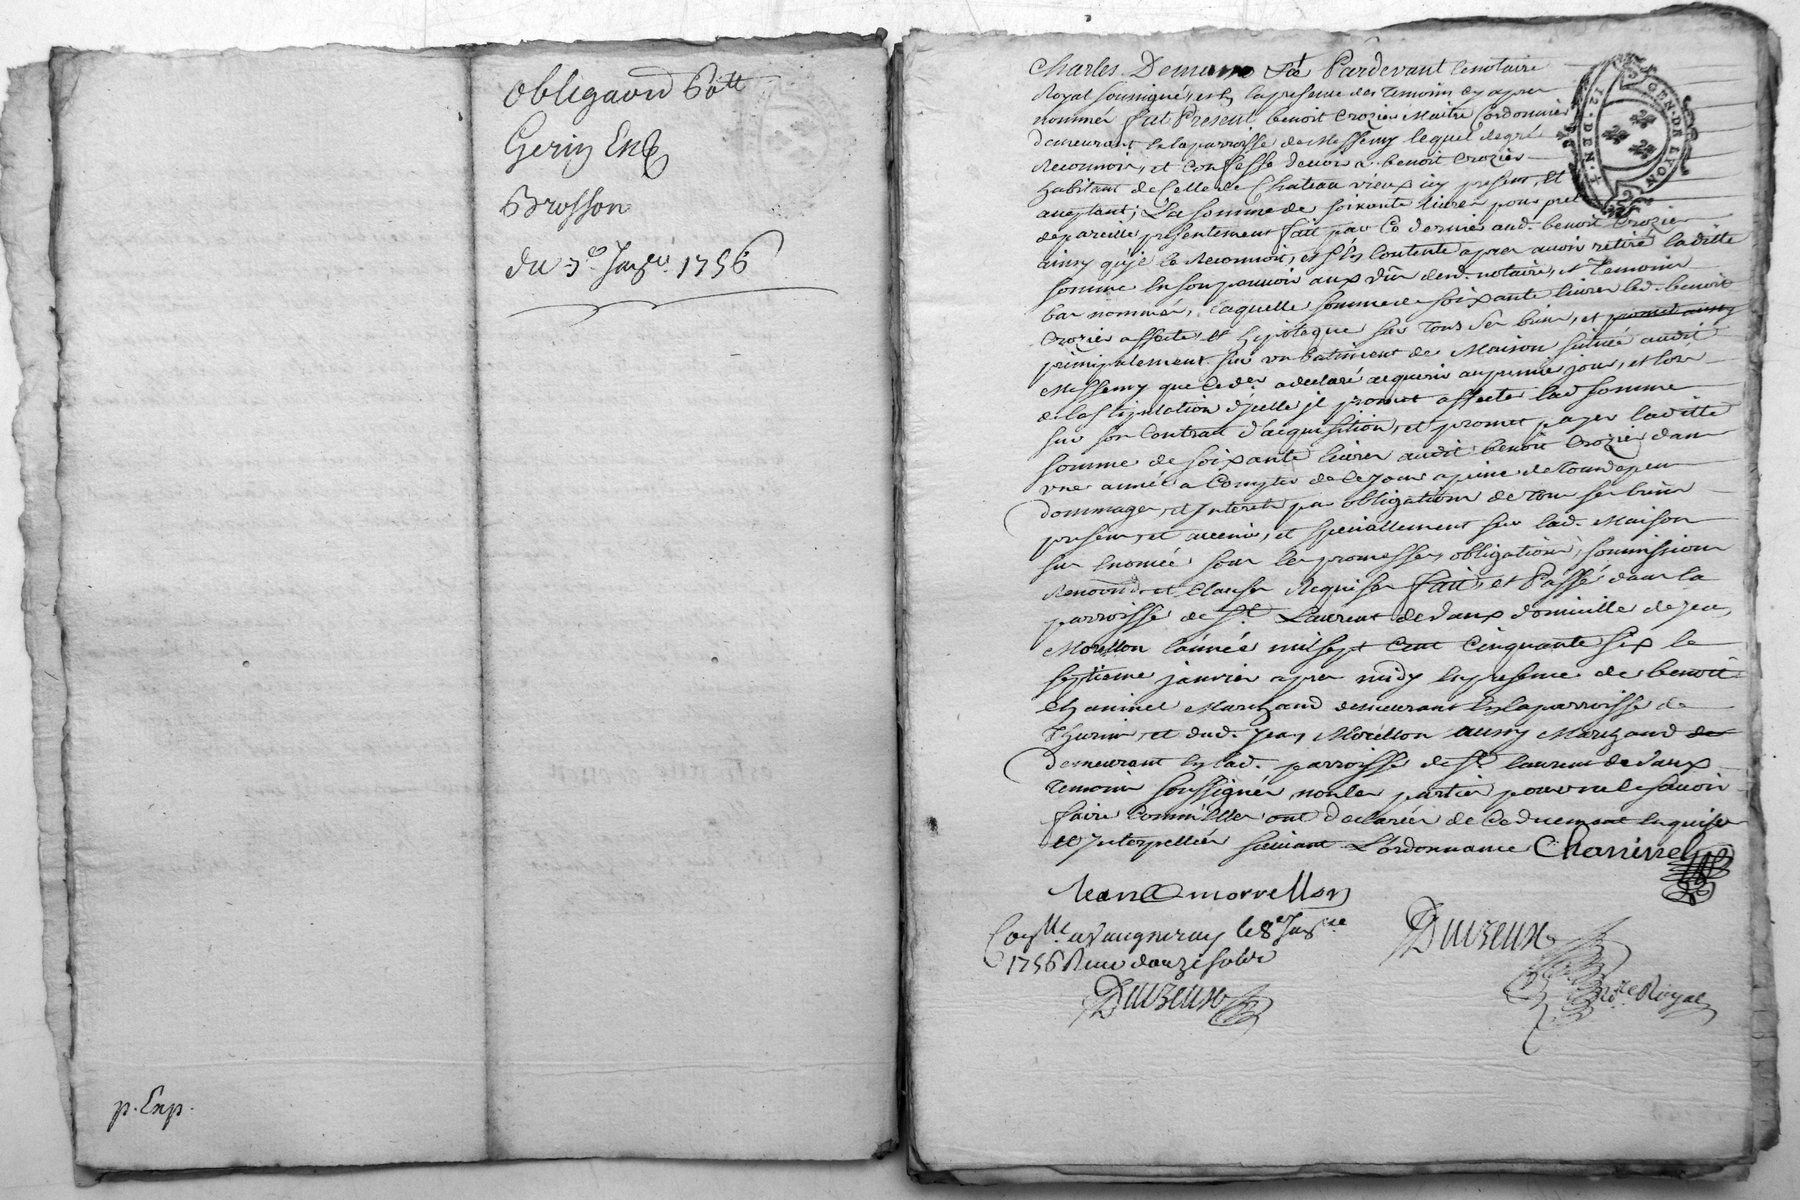 obligaõn
Gerin
Brosson
du 3e Janer. 1756
p. Exp.
GEN. DE LYON
12. DEN. 1
Charles Pardevant le notaire
Royal soussigné, et en la presence des temoins cy apres
nommés fut Present benoit Crozier Maitre Cordonnier
demeurant en la parroisse de Messemy lequel de gré
Reconnoit, et Confesse devoir a benoit Crozier
habitant de Celle de Chateau vieux icy present, et
aceptant; La somme de soixante livres pour pret
de pareille presentement fait par Ce dernier aud. benoit Crozier
ainsy qu'je le Reconnoit, et s'en Contente apres avoir retiré laditte
somme en son pouvoir aux vûe dud. notaire, et Temoins
bas nommés, laquelle somme de soixante livres led. benoit
Crozier affecte, et hypoteque sur tous ses biens, et
principalement sur un batiment de Maison située audit
Messemy que Ced. a declaré acquerir au premier jour, et lors
de la stipulation d'jcelle jl promet affecter lad. somme
sur son Contrat d'acquisition, et promet payer laditte
somme de soixante livres audit benoit Crozier dans
une année a Compter de Ce jour a peine de tous depens
dommages, et Interets par obligations de tous ses biens
presents, et avenir, et speciallement sur lad. Maison
sus enomée sous les promesses, obligations, soumissions
Renonõns, et Clauses Requises fait, et Passé dans la
parroisse de St. Laurent de Vaux domicille de jean
Morellon l'année mil sept Cent Cinquante six le
septieme janvier apres midy en presence de benoit
Chaninel Marchand demeurant en la parroisse de
Thurins, et dud. jean Morellon aussy Marchand
demeurant en lad. parroisse de St. laurent de Vaux
temoins soussignés, non les parties pour ne le savoir
faire Comm'elles ont declarées de Ce duement enquises
et Interpellées suivant L'ordonnance Chaninel
Jean morrellon
Con.lle a Vaugneray le 8e Janer
1756 Recu douze sols
Duizeux
Duizeux
nore Royal